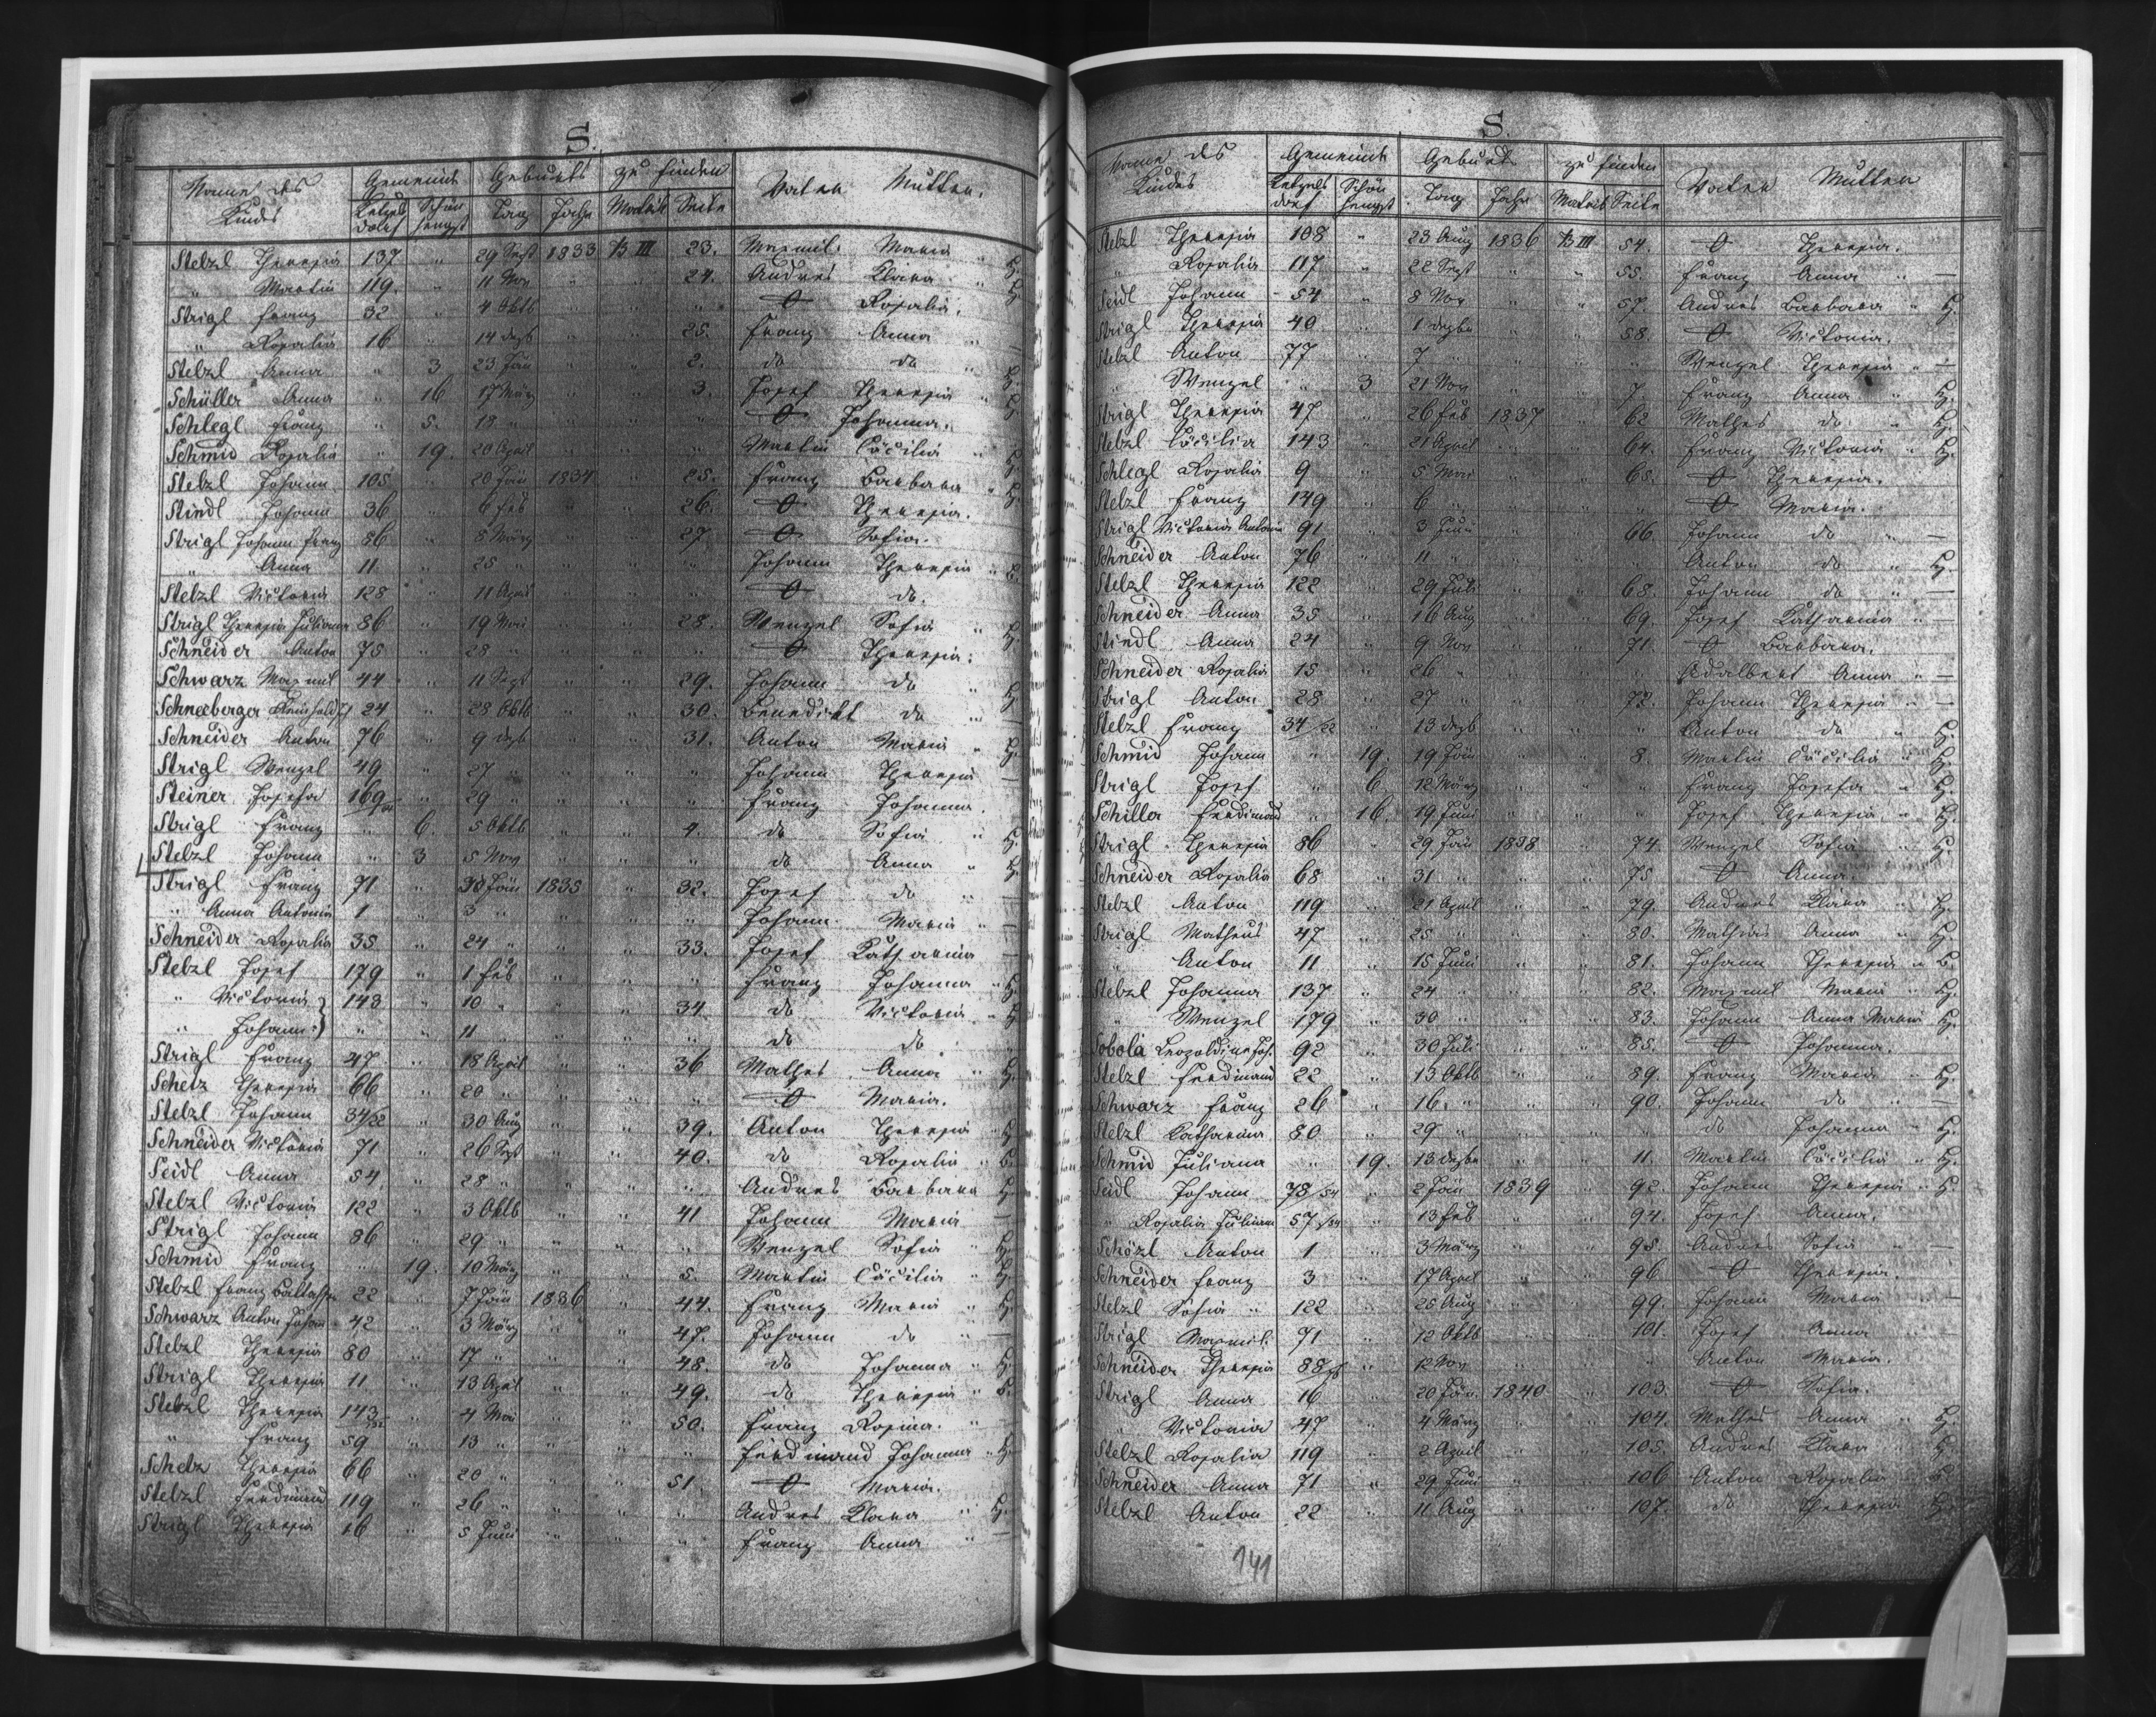 S.
Name des Kindes Gemeinde Geburts zu finden Vater Mutter.
Ketzelsdorf Schönhengst Tag Jahr Matrik Seite
Stelzl Theresia 137 " 29 Sept 1833 B III 23. Maxmil. Maria "
" Martin 119. " 11 Nov " " 24. Andres Klara "
Strigl Franz 32 " 4 Oktb " " " O Rosalia.
" Rosalia 16 " 14 dezb " " 25. Franz Anna " —
Stelzl Anna " 3 23 Jän " " 2. do do "
Schüller Anna " 16 17 März " " 3. Josef Theresia "
Schlegl Franz " 5. 18 " " " " O Johanna.
Schmid Rosalia " 19. 20 April " " " Martin Cäcilia "
Stelzl Johann 105 " 20 Jän 1834 " 25. Franz Barbara "
Stindl Johann 36 " 6 Feb " " 26. O Theresia.
Strigl Johann Franz 86 " 8 März " " 27 O Sofia.
" Anna 11. " 25 " " " " Johann Theresia "
Stelzl Victoria 128 " 11 April " " " O do.
Strigl Theresia Juliana 86 " 19 Mai " " 28. Wenzel Sofia "
Schneider Anton 75 " 28 " " " " O Theresia.
Schwarz Maxmil 44 " 11 Sept " " 29. Johann do "
Schneeberger 24 " 28 Oktb " " 30. Benedickt do " —
Schneider Anton 76 " 9 dezb " " 31. Anton Maria "
Strigl Wenzel 49 " 27 " " " " Johann Theresia —
Steiner Josefa 169 " 29 " " " " Franz Johanna.
Strigl Franz " 6. 5 Oktb " " 4. do Sofia "
Stelzl Johann " 3 5 Nov " " " do Anna "
Strigl Franz 71 " 30 Jän 1835 " 32. Josef do " —
" Anna Antonia 1 " 3 " " " " Johann Maria " —
Schneider Rosalia 35 " 24 " " " 33. Josef Katharina —
Stelzl Josef 179 " 1 Feb " " " Franz Johanna "
" Victoria } 143 " 10 " " " 34. do Victoria "
" Johann } " " 11 " " " " do do "
Strigl Franz 47 " 18 April " " 36 Mathes Anna "
Schetz Theresia 66 " 20 " " " " O Maria.
Stelzl Johann 34/22 " 30 Aug " " 39. Anton Theresia "
Schneider Victoria 71 " 26 Sept " " 40. do Rosalia "
Seidl Anna 54. " 28 " " " " Andres Barbara
Stelzl Victoria 122 " 3 Oktb " " 41 Johann Maria —
Strigl Johann 86 " 29 " " " " Wenzel Sofia "
Schmid Franz " 19. 10 März " " 5. Martin Cäcilia "
Stelzl Franz Balthasar 22 " 7 Jän 1836 " 44. Franz Maria "
Schwarz Anton Johann 42 " 3 März " " 47. Johann do " —
Stelzl Theresia 80 " 17 " " " 48. do Johanna "
Strigl Theresia 11. " 13 April " " 49. do Theresia "
Stelzl Theresia 143 " 4 Mai " " 50. Franz Rosina. "
" Franz 59 " 13 " " " " Ferdinand Johanna "
Schetz Theresia 66 " 20 " " " 51. O Maria.
Stelzl Ferdinand 119 " 26 " " " " Andres Klara "
Strigl Theresia 16 " 5 Juni " " " Franz Anna " —
S.
Name des Kindes Gemeinde Geburts zu finden Vater Mutter
Ketzelsdorf Schönhengst Tag Jahr Matrik Seite
Stelzl Theresia 108 " 23 Aug 1836 B III 54. O Theresia.
" Rosalia 117 " 22 Sept " " 55. Franz Anna " —
Seidl Johann 54 " 8 Nov " " 57. Andres Barbara "
Strigl Theresia 40 " 1 dezbr " " 58. O Victoria.
Stelzl Anton 77 " 7 " " " " Wenzel Theresia " —
" Wenzel " 3 21 Nov " " 7. Franz Anna "
Strigl Theresia 47 " 26 Feb 1837 " 62 Mathes do "
Stelzl Cäcilia 143 " 21 April " " 64. Franz Victoria "
Schlegl Rosalia 9 " 5 Mai " " 65. O Theresia.
Stelzl Franz 149 " 6 " " " " O Maria.
Strigl Victoria Antonia 91 " 3 Juni " " 66. Johann do " —
Schneider Anton 76 " 11 " " " " Anton do "
Stelzl Theresia 122 " 29 Juli " " 68. Johann do " —
Schneider Anna 35 " 16 Aug " " 69. Josef Katharina " —
Stindl Anna 24 " 9 Nov " " 71. O Barbara.
Schneider Rosalia 15 " 26 " " " " Adalbert Anna " —
Strigl Anton 28 " 27 " " " 72. Johann Theresia " —
Stelzl Franz 34/22 " 13 dezb " " " Anton do "
Schmid Johann " 19. 19 Jän " " 8. Martin Cäcilia "
Strigl Josef " 6 12 März " " " Franz Josefa "
Schiller Ferdinand " 16. 19 Juni " " " Josef Theresia "
Strigl Theresia 86 " 29 Jän 1838 " 74. Wenzel Sofia "
Schneider Rosalia 68 " 31 " " " 75 O Anna.
Stelzl Anton 119 " 21 April " " 79. Andres Klara "
Strigl Matheus 47 " 25 " " " 80. Mathias Anna "
" Anton 11 " 15 Juni " " 81. Johann Theresia "
Stelzl Johanna 137 " 24 " " " 82. Maxmil Maria "
" Wenzel 179 " 30 " " " 83. Johann Anna Maria
Sobola Leopoldine Joh. 92 " 30 Juli " " 85. O Johanna.
Stelzl Ferdinand 22 " 13 Oktb " " 89. Franz Maria "
Schwarz Franz 26 " 16. " " " 90. Johann do " —
Stelzl Katharina 80 " 29 " " " " do Johanna "
Schmid Juliana " 19. 13 dezbr " " 11. Martin Cäcilia "
Seidl Johann 78/54 " 2 Jän 1839 " 92. Johann Theresia "
" Rosalia Juliana 57/54 " 13 Feb " " 94. Josef Anna.
Schözl Anton 1 " 3 März " " 95. Andres Sofia " —
Schneider Franz 3 " 17 April " " 96 O Theresia.
Stelzl Sofia 122 " 25 Aug " " 99. Johann Maria " —
Strigl Maxmil. 71 " 12 Oktb " " 101. Josef Anna —
Schneider Theresia 88 " 12 Nov " " " Anton Maria.
Strigl Anna 16 " 20 Jän 1840 " 103. O Sofia.
" Victoria 47 " 4 März " " 104. Mathes Anna "
Stelzl Rosalia 119 " 2 April " " 105. Andres Klara "
Schneider Anna 71 " 29 Juni " " 106 Anton Rosalia
Stelzl Anton 22 " 11 Aug " " 107. do Theresia
141